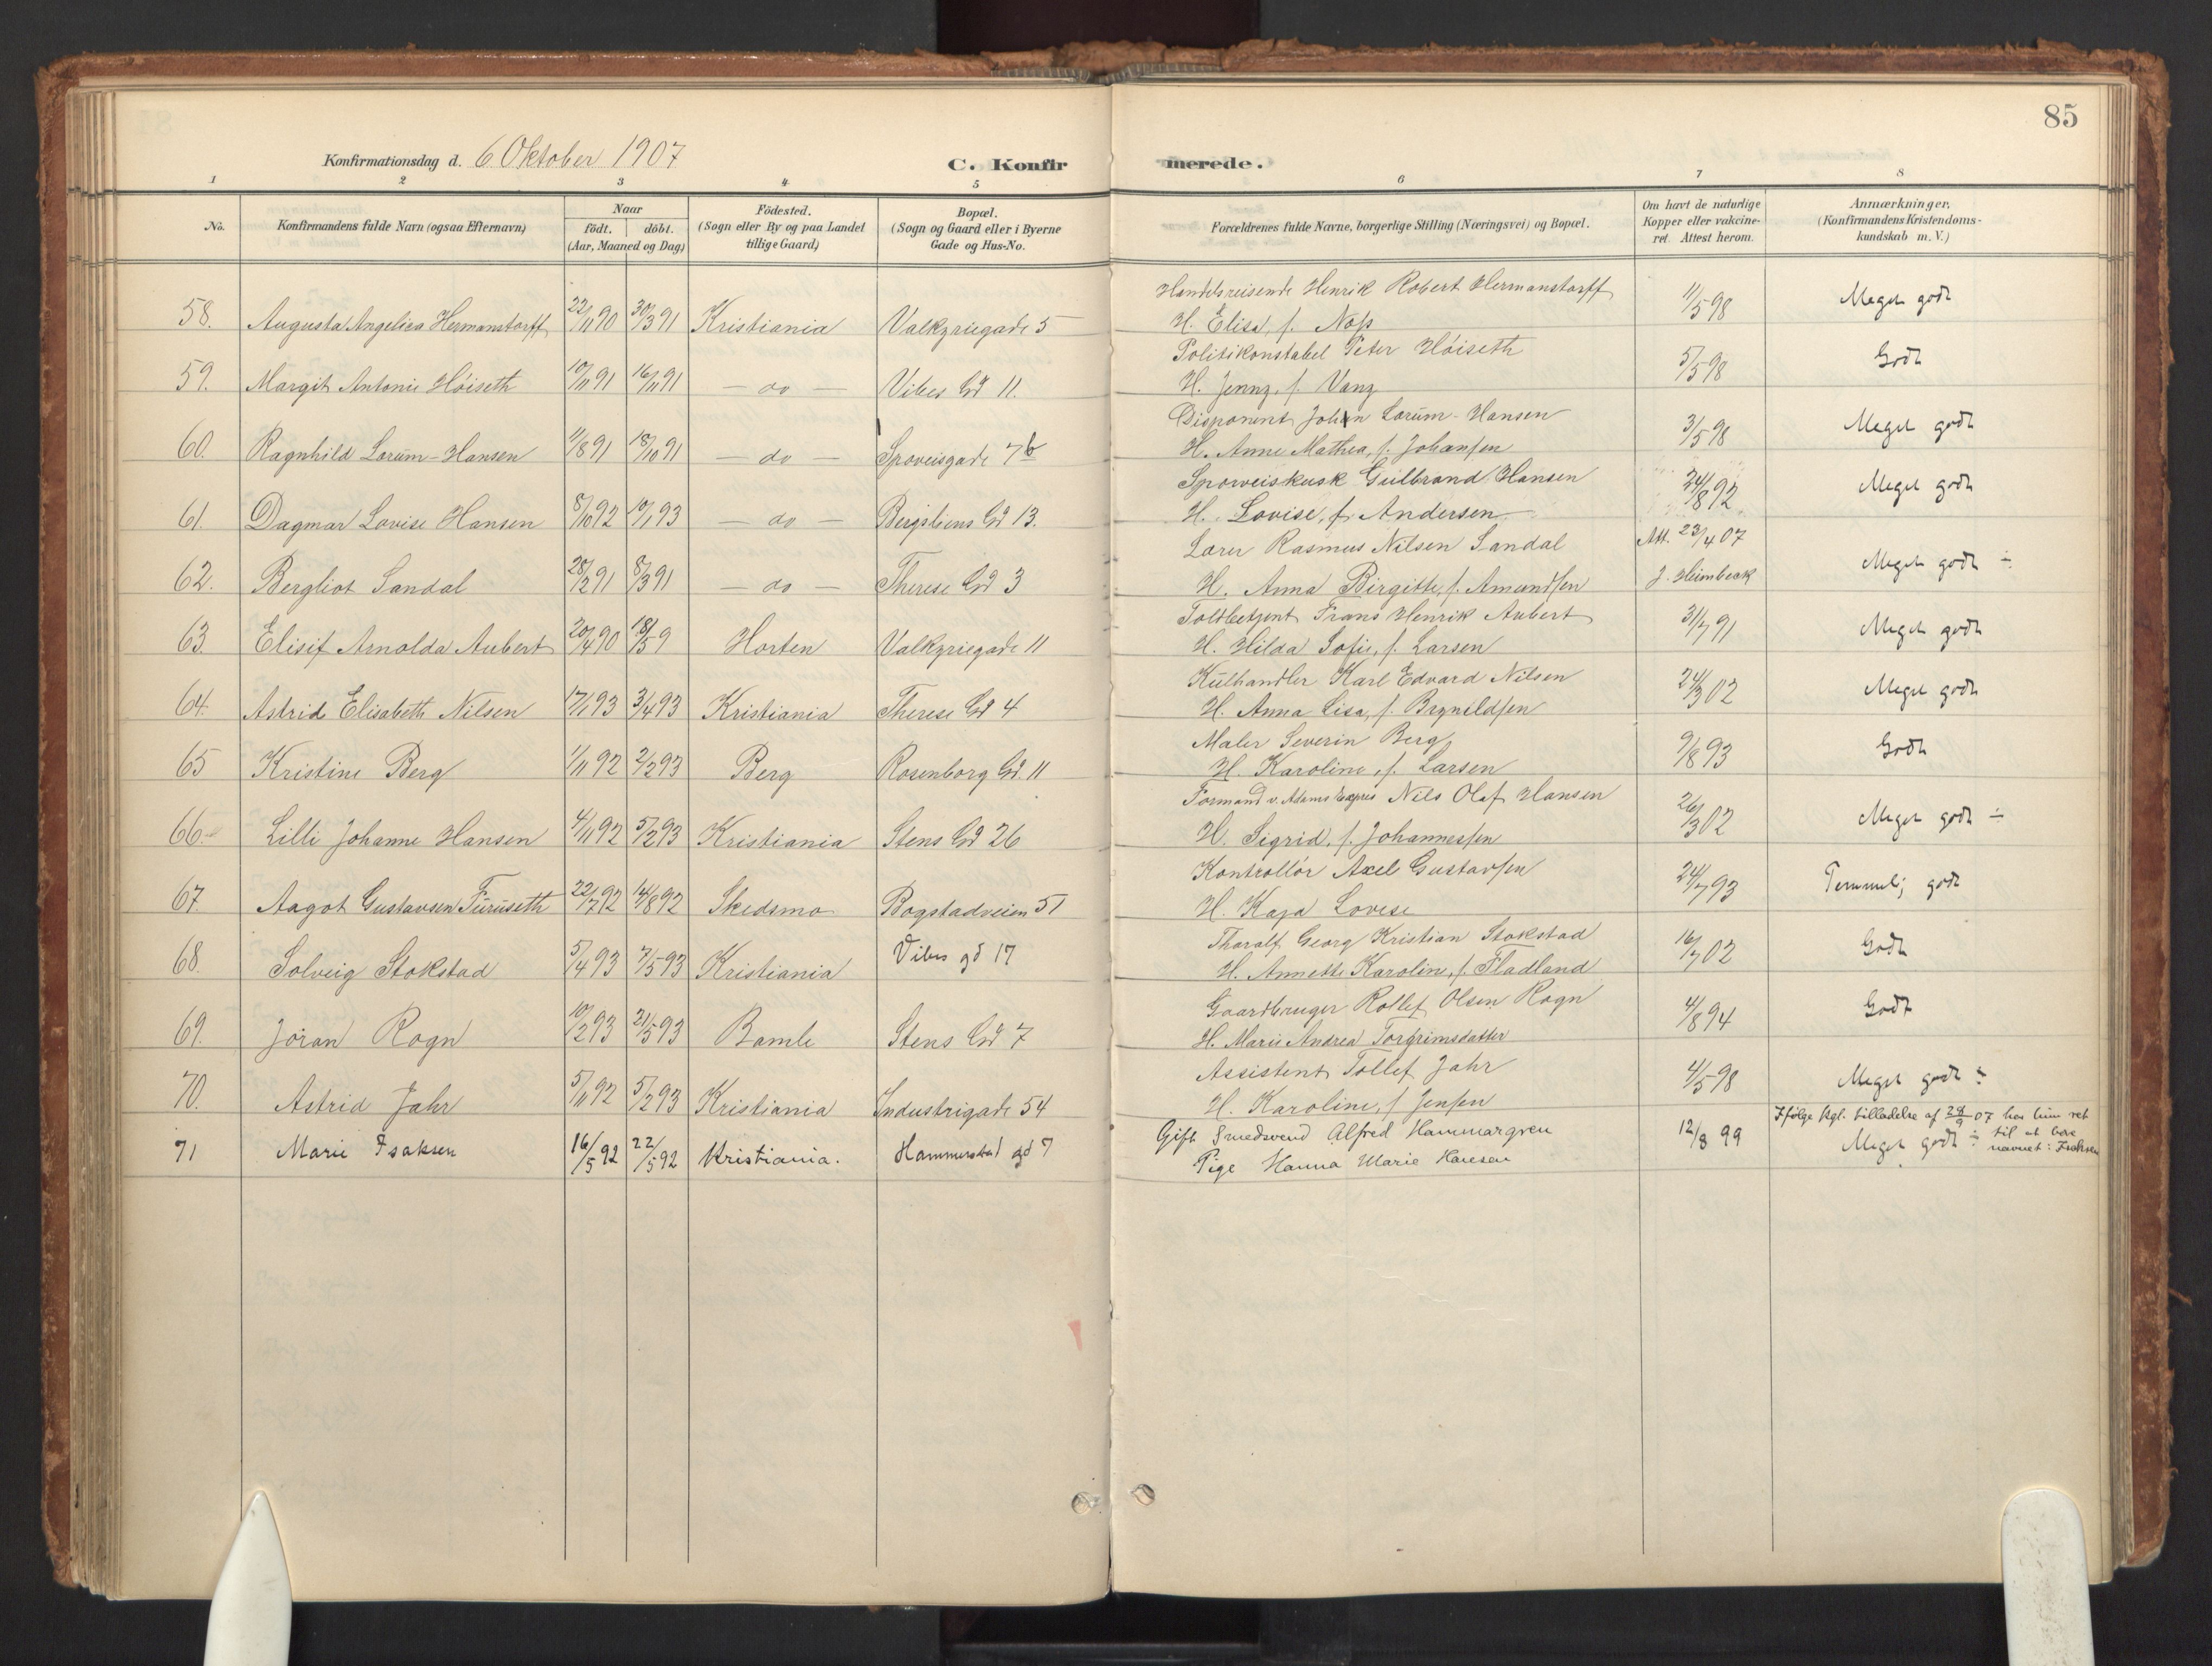 85
Konfirmationsdag d. 6 Oktober 1907 C. Konfirmerede.
1 2 3 4 5 6 7 8
No. Konfirmandens fulde Navn (ogsaa Efternavn) Naar födt. döbt. (Aar, Maaned og Dag) Födested. (Sogn eller By og paa Landet tillige Gaard) Bopæl. (Sogn og Gaard eller i Byerne Gade og Hus-No. Forældrenes fulde Navne, borgerlige Stilling (Næringsvei) og Bopæl. Om havt de naturlige Kopper eller vakcineret. Attest herom. Anmærkninger, (Konfirmandens Kristendomskundskab m. V.)
Handelsreisende Henrik Robert Hermanstorff
58. Augusta Angelica Hermanstorff 22/11 90 30/3 91 Kristiania Valkyriegade 5 H. Elisa, f. Nops 11/5 98 Meget godt
Politikonstabel Peter Höiseth
59. Margit Antonie Höiseth 10/11 91 16/11 91 — do — Vibes Gd 11. H. Jenny, f. Vang 5/5 98 Godt
Disponent Johan Lorum-Hansen
60. Ragnhild Lorum-Hansen 11/8 91 18/10 91 — do — Sporveisgade 7b H. Anne Mathea, f. Johansen 3/5 98 Meget godt
Sporveiskusk Gulbrand Hansen
61. Dagmar Lovise Hansen 8/10 92 10/1 93 — do — Bergsliens Gd 13. H. Lovise, f. Andersen 24/8 92 Meget godt
Lærer Rasmus Nilsen Sandal Att. 23/4 07
62. Bergliot Sandal 28/2 91 8/3 91 — do — Therese Gd 3 H. Anna Birgitte, f. Amundsen J. Heimbeck Meget godt ÷
Toldbetjent Frans Henrik Aubert
63. Elisif Arnolda Aubert 20/4 90 18/5 9 Horten Valkyriegade 11 H. Hilda Sofie, f. Larsen 31/7 91 Meget godt
Kulhandler Karl Edvard Nilsen
64. Astrid Elisabeth Nilsen 17/1 93 3/4 93 Kristiania Therese Gd 4 H. Anna Lisa, f. Brynildsen 24/3 02 Meget godt
Maler Severin Berg
65 Kristine Berg 1/11 92 2/2 93 Berg Rosenborg Gd. 11 H. Karoline, f. Larsen 9/8 93 Godt
Formand v. Adams Expres Nils Olaf Hansen
66. Lilli Johanne Hansen 4/11 92 5/2 93 Kristiania Stens Gd 26 H. Sigrid, f. Johannessen 26/3 02 Meget godt ÷
Kontrollör Axel Gustavsen
67. Aagot Gustavsen Furuseth 22/7 92 14/8 92 Skedsmo Bogstadveien 51 H. Kaja Lovise 24/7 93 Temmelig godt
Tharalf Georg Kristian Stokstad
68. Solveig Stokstad 5/4 93 7/5 93 Kristiania Vibes gd 17 H. Annette Karolin, f. Fladland 16/7 02 Godt
Gaardbruger Rollef Olsen Rogn
69. Jöran Rogn 10/2 93 21/5 93 Bamle Stens Gd 7 H. Marie Andrea Torgrimsdatter 4/8 94 Godt
Assistent Tollef Jahr
70. Astrid Jahr 5/11 92 5/2 93 Kristiania Industrigade 54 H. Karoline, f. Jensen 4/5 98 Meget godt ÷
Gift Smedsvend Alfred Hammargren Ifølge kgl. tilladelse af 28/9 07 har hun ret til at bære navnet: Isaksen
71 Marie Isaksen 16/5 92 22/5 92 Kristiania. Hammerstad gd 7 Pige Hanna Marie Hansen 12/8 99 Meget godt ÷